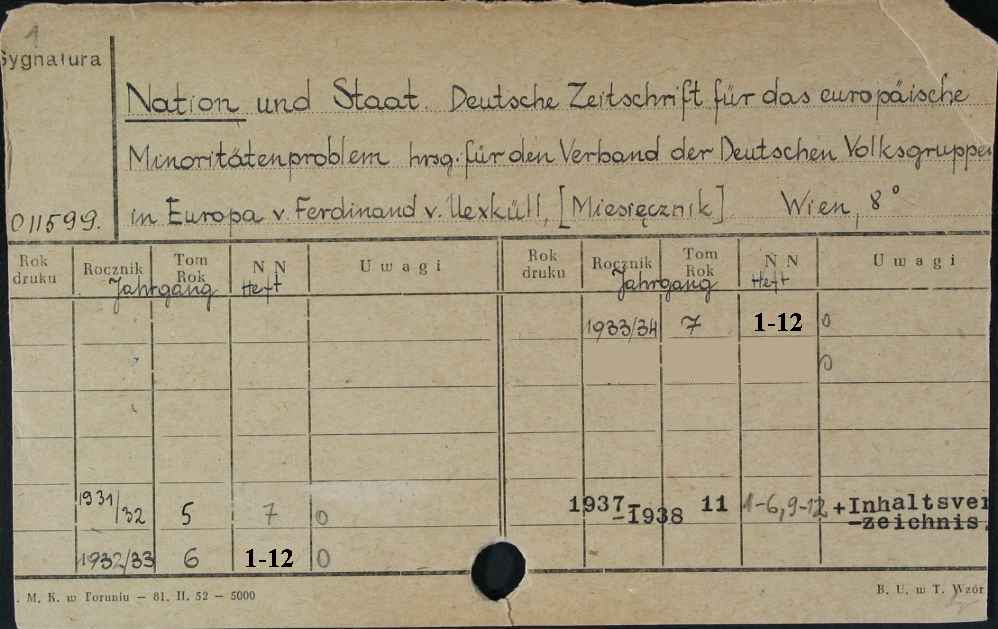 1
Sygnatura
Nation und Staat. Deutsche Zeitschrift für das europäische
Minoritätenproblem hrsg. für den Verband der Deutschen Volksgruppen
in Europa v. Ferdinand v. Uexküll, [Miesięcznik] Wien, 8°
011599.
Rok druku Rocznik Tom Rok N N Uwagi Rok druku Rocznik Tom Rok N N Uwagi
Jahrgang Heft Jahrgang Heft
1933/34 7 1-12 0
0
1931/32 5 7 0 1937-1938 11 1-6, 9-12 +Inhaltsver
-zeichnis.
1932/33 6 1-12 0
. M. K. w Toruniu — 81. II. 52 — 5000 B. U. w T. Wzór